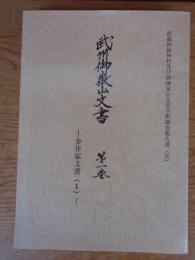 武蔵御嶽神社及び御師家古文書学術調査報告書（Ⅱ）
武州御嶽山文書 第一巻
―金井家文書（１）―